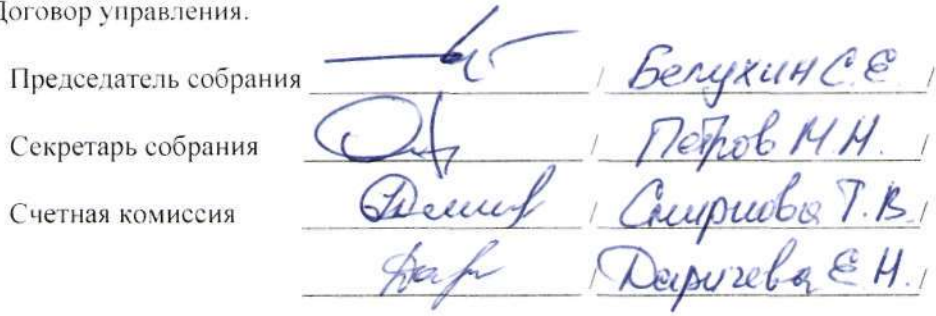 Договор управления.
Председатель собрания / Белухин С.Е /
Секретарь собрания / Петров М.Н. /
Счетная комиссия / Смирнова Т.В. /
/ Даричева Е.Н. /